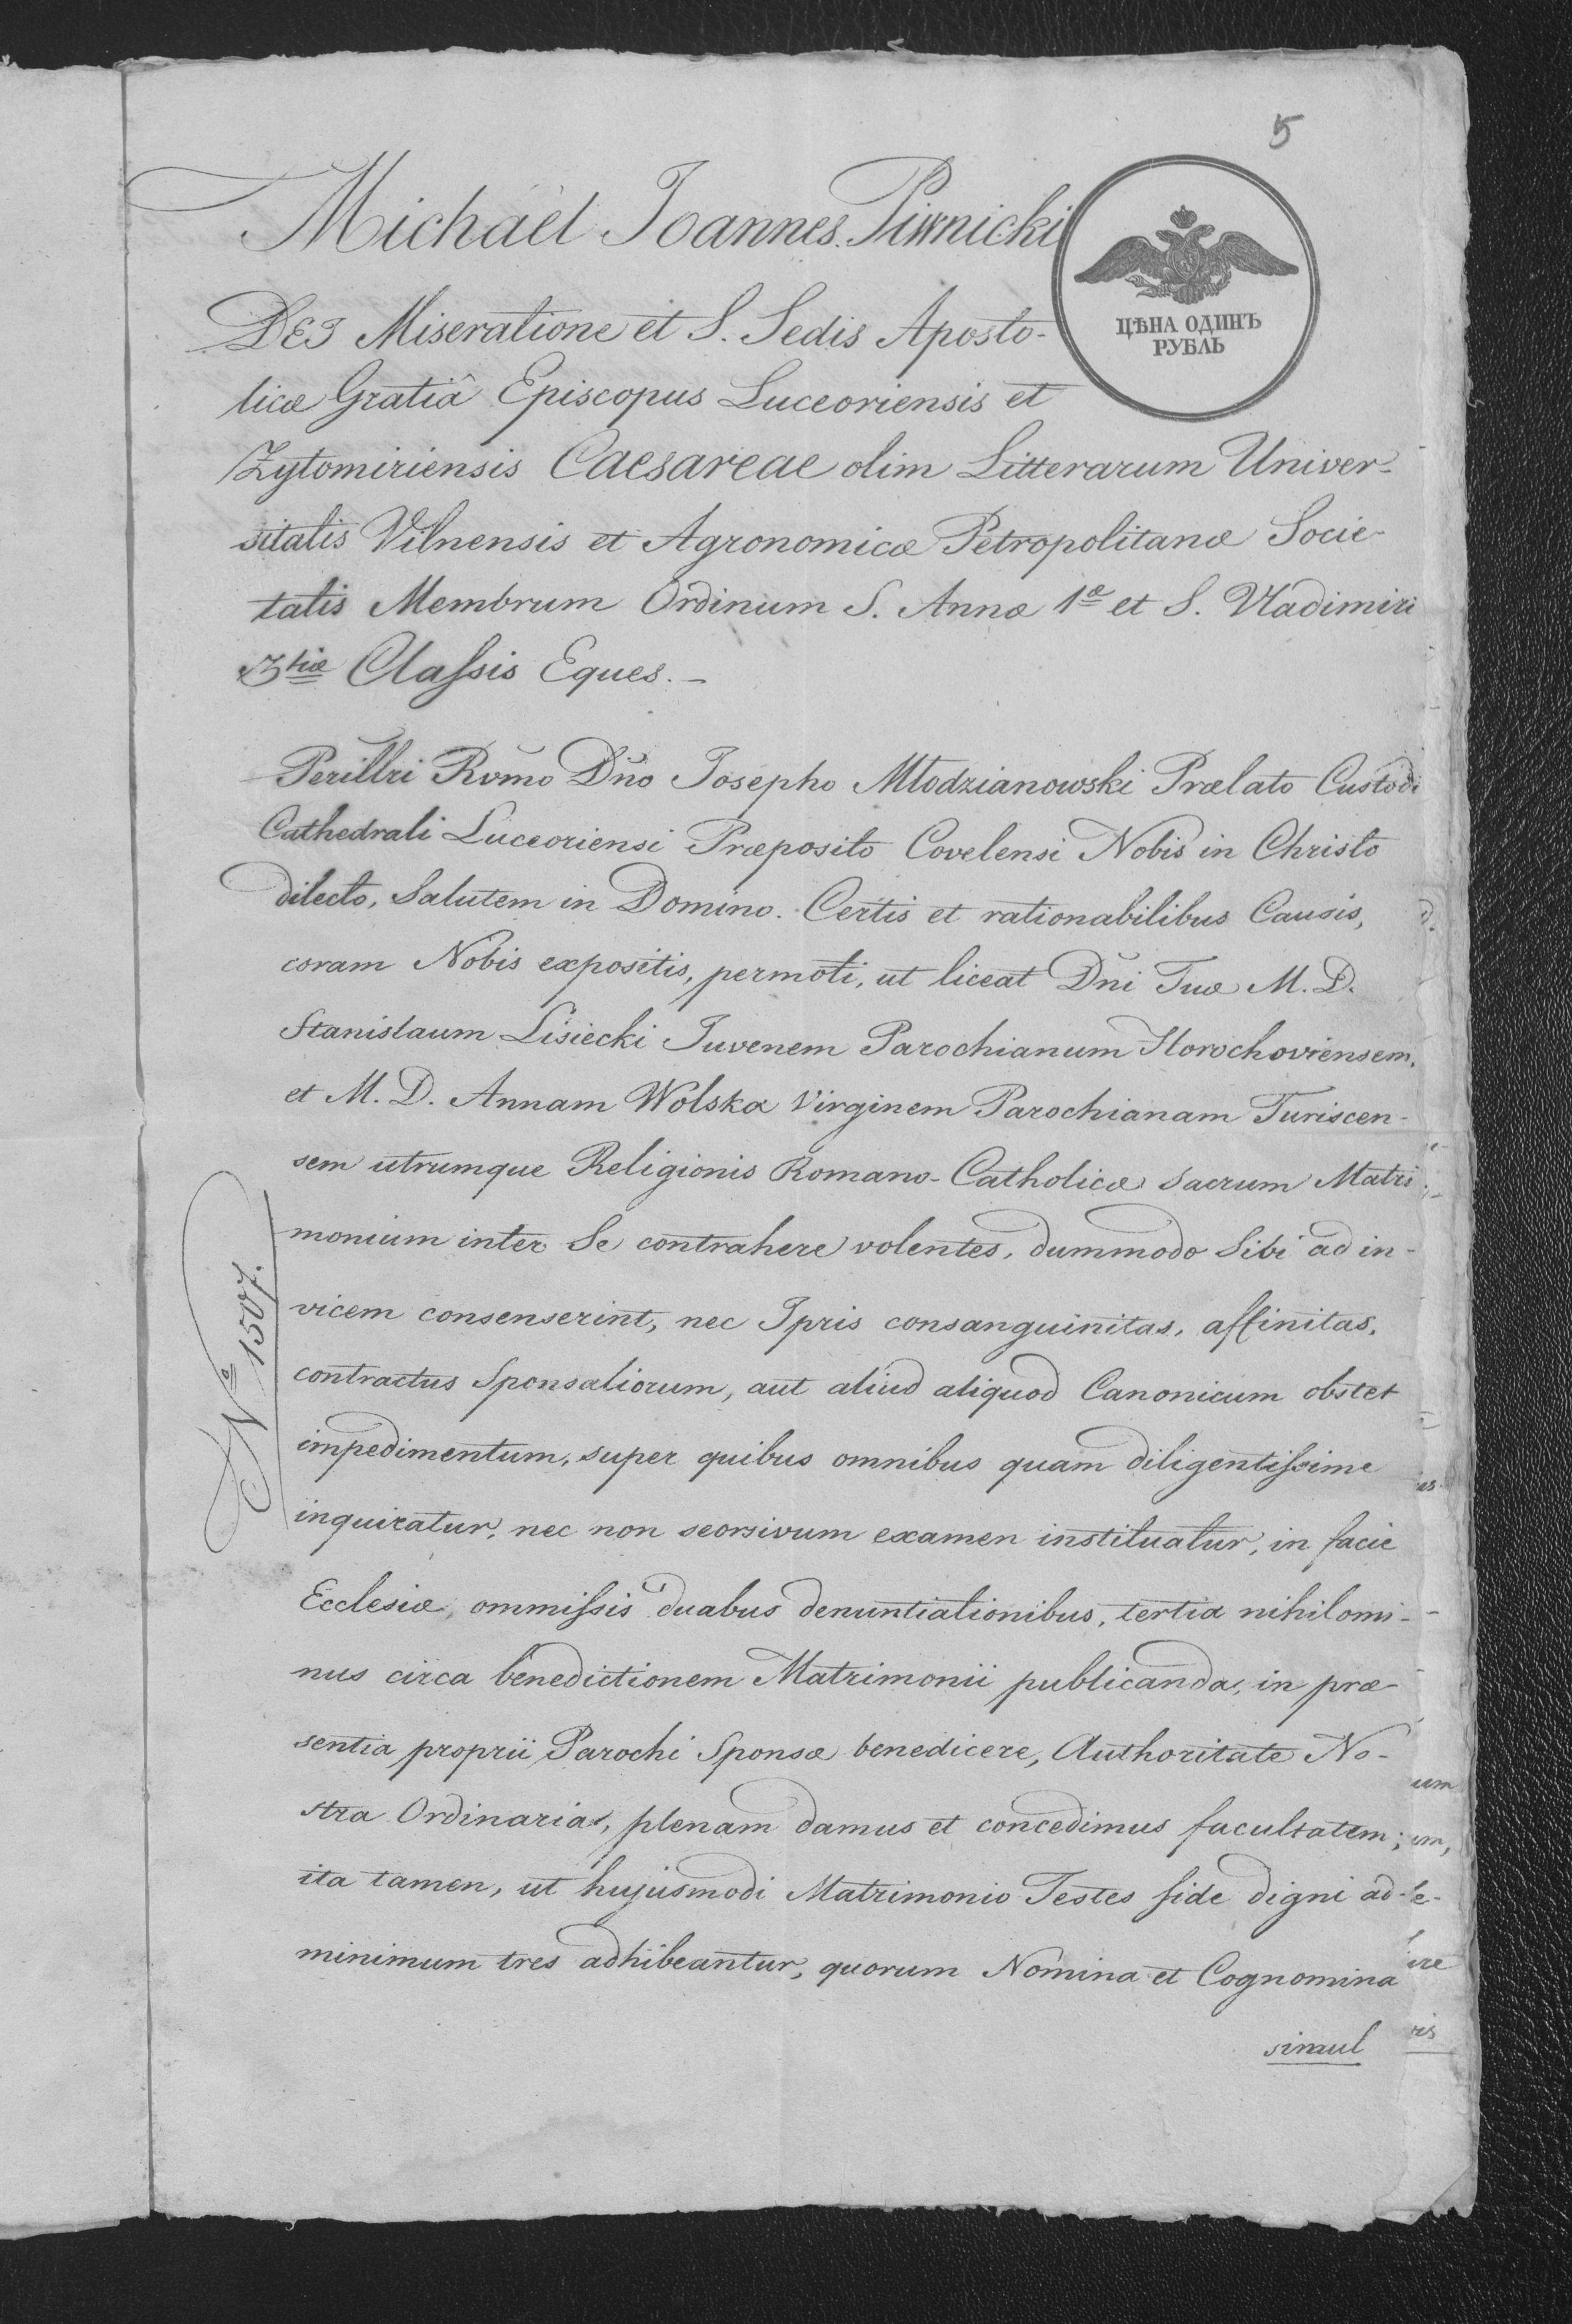 5
Michaël Joannes Piwnicki
ЦѢНА ОДИНЪ
РУБЛЬ
DEI Miseratione et S. Sedis Aposto-
licæ Gratiâ Episcopus Luceoriensis et
Zytomiriensis Caesareae olim Litterarum Univer-
sitatis Vilnensis et Agronomicæ Petropolitanæ Socie-
tatis Membrum Ordinum S. Annæ 1æ et S. Vladimiri
3tiæ Classis Eques.-
Perillri Rvmo Dño Josepho Młodzianowski Prælato Custodi
Cathedrali Luceoriensi Præposito Covelensi Nobis in Christo
dilecto, Salutem in Domino. Certis et rationabilibus Causis,
coram Nobis expositis, permoti, ut liceat Dñi Tuæ M. D.
Stanislaum Lisiecki Juvenem Parochianum Horochoviensem,
et M. D. Annam Wolska Virginem Parochianam Turiscen-
sem utrumque Religionis Romano-Catholicæ Sacrum Matri-
monium inter Se contrahere volentes, dummodo Sibi ad in-
vicem consenserint, nec Ipsis consanguinitas, affinitas,
contractus Sponsaliorum, aut aliud aliquod Canonicum obstet
impedimentum, super quibus omnibus quam diligentissime
inquiratur, nec non seorsivum examen instituatur, in facie
Ecclesiæ, ommissis duabus denuntiationibus, tertia nihilomi-
nus circa benedictionem Matrimonii publicanda, in præ-
sentia proprii Parochi Sponsæ benedicere, Authoritate No-
stra Ordinaria, plenam damus et concedimus facultatem;
ita tamen, ut hujusmodi Matrimonio Testes fide digni ad-
minimum tres adhibeantur, quorum Nomina et Cognomina
simul
№ 1507.